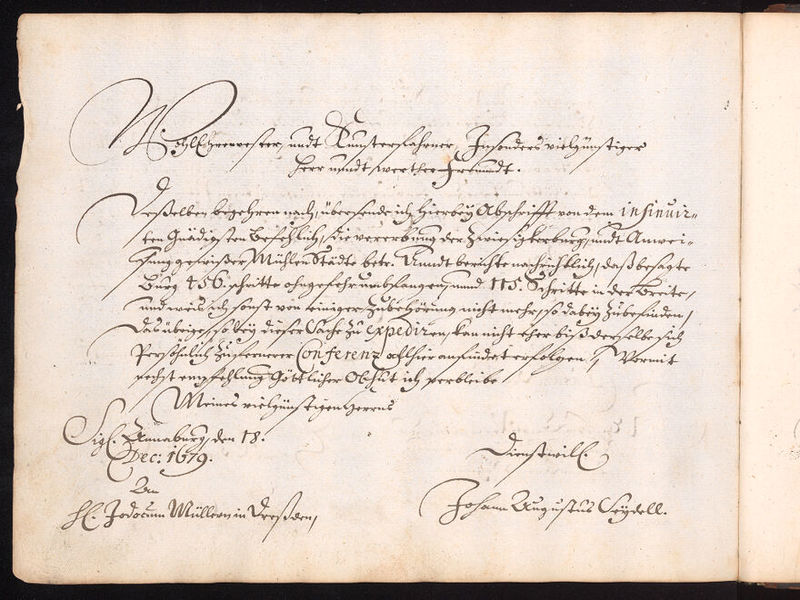 WohlEhrenvester, undt Kunsterfahrner, Insonders vielgünstiger
Herr undt, werther Freundt.
Deßelben begehren nach, übersende ich hierbey Abschrifft von dem insinuir-
ten Gnädigsten Befehlich, die vererbung der Zwiesigkerburg, undt Anwei-
sung gewißer Mühlen Städte betr. Undt berichte nachrichtlich, daß besagte
Burg 456. schritte ohngefehr umbfangen, unnd 115. Schritte in der Breite,
und weil ich sonst von einiger Zubehörung nicht mehr, so dabey zubefinden,
Das übrige, so bey dieser Sache zu expediren, kan nicht eher biß derselbe sich
Persöhnlich zu fernerer Conferenz allhier anfindet erfolgen, Vermit
nechst empfehlung Göttlicher Obhut ich verbleibe
Meines vielgünstigen Herrns
Sigl. Annaburg, den 18.
Dec: 1679.
Dienstwill.
An
H. Jodocum Müllern in Dreßden,
Johann Augustus Seydell.